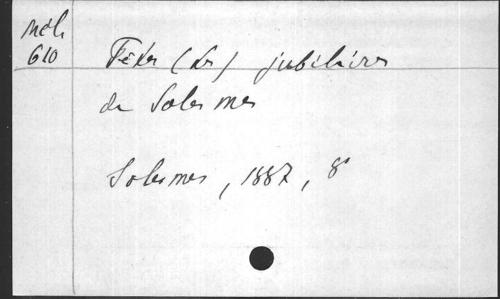 Mél.
610
Fêtes (Les) jubilaires
de Solesmes
Solesmes, 1887, 8°